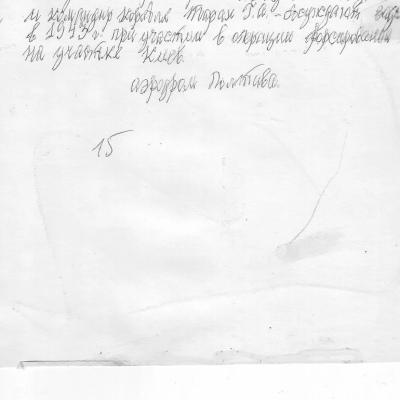 и командир корабля Тиран Г.А. - обсуждают
в 1943 г. при участии в операции форсирования
на участке Киев.
аэродром Полтава.
15